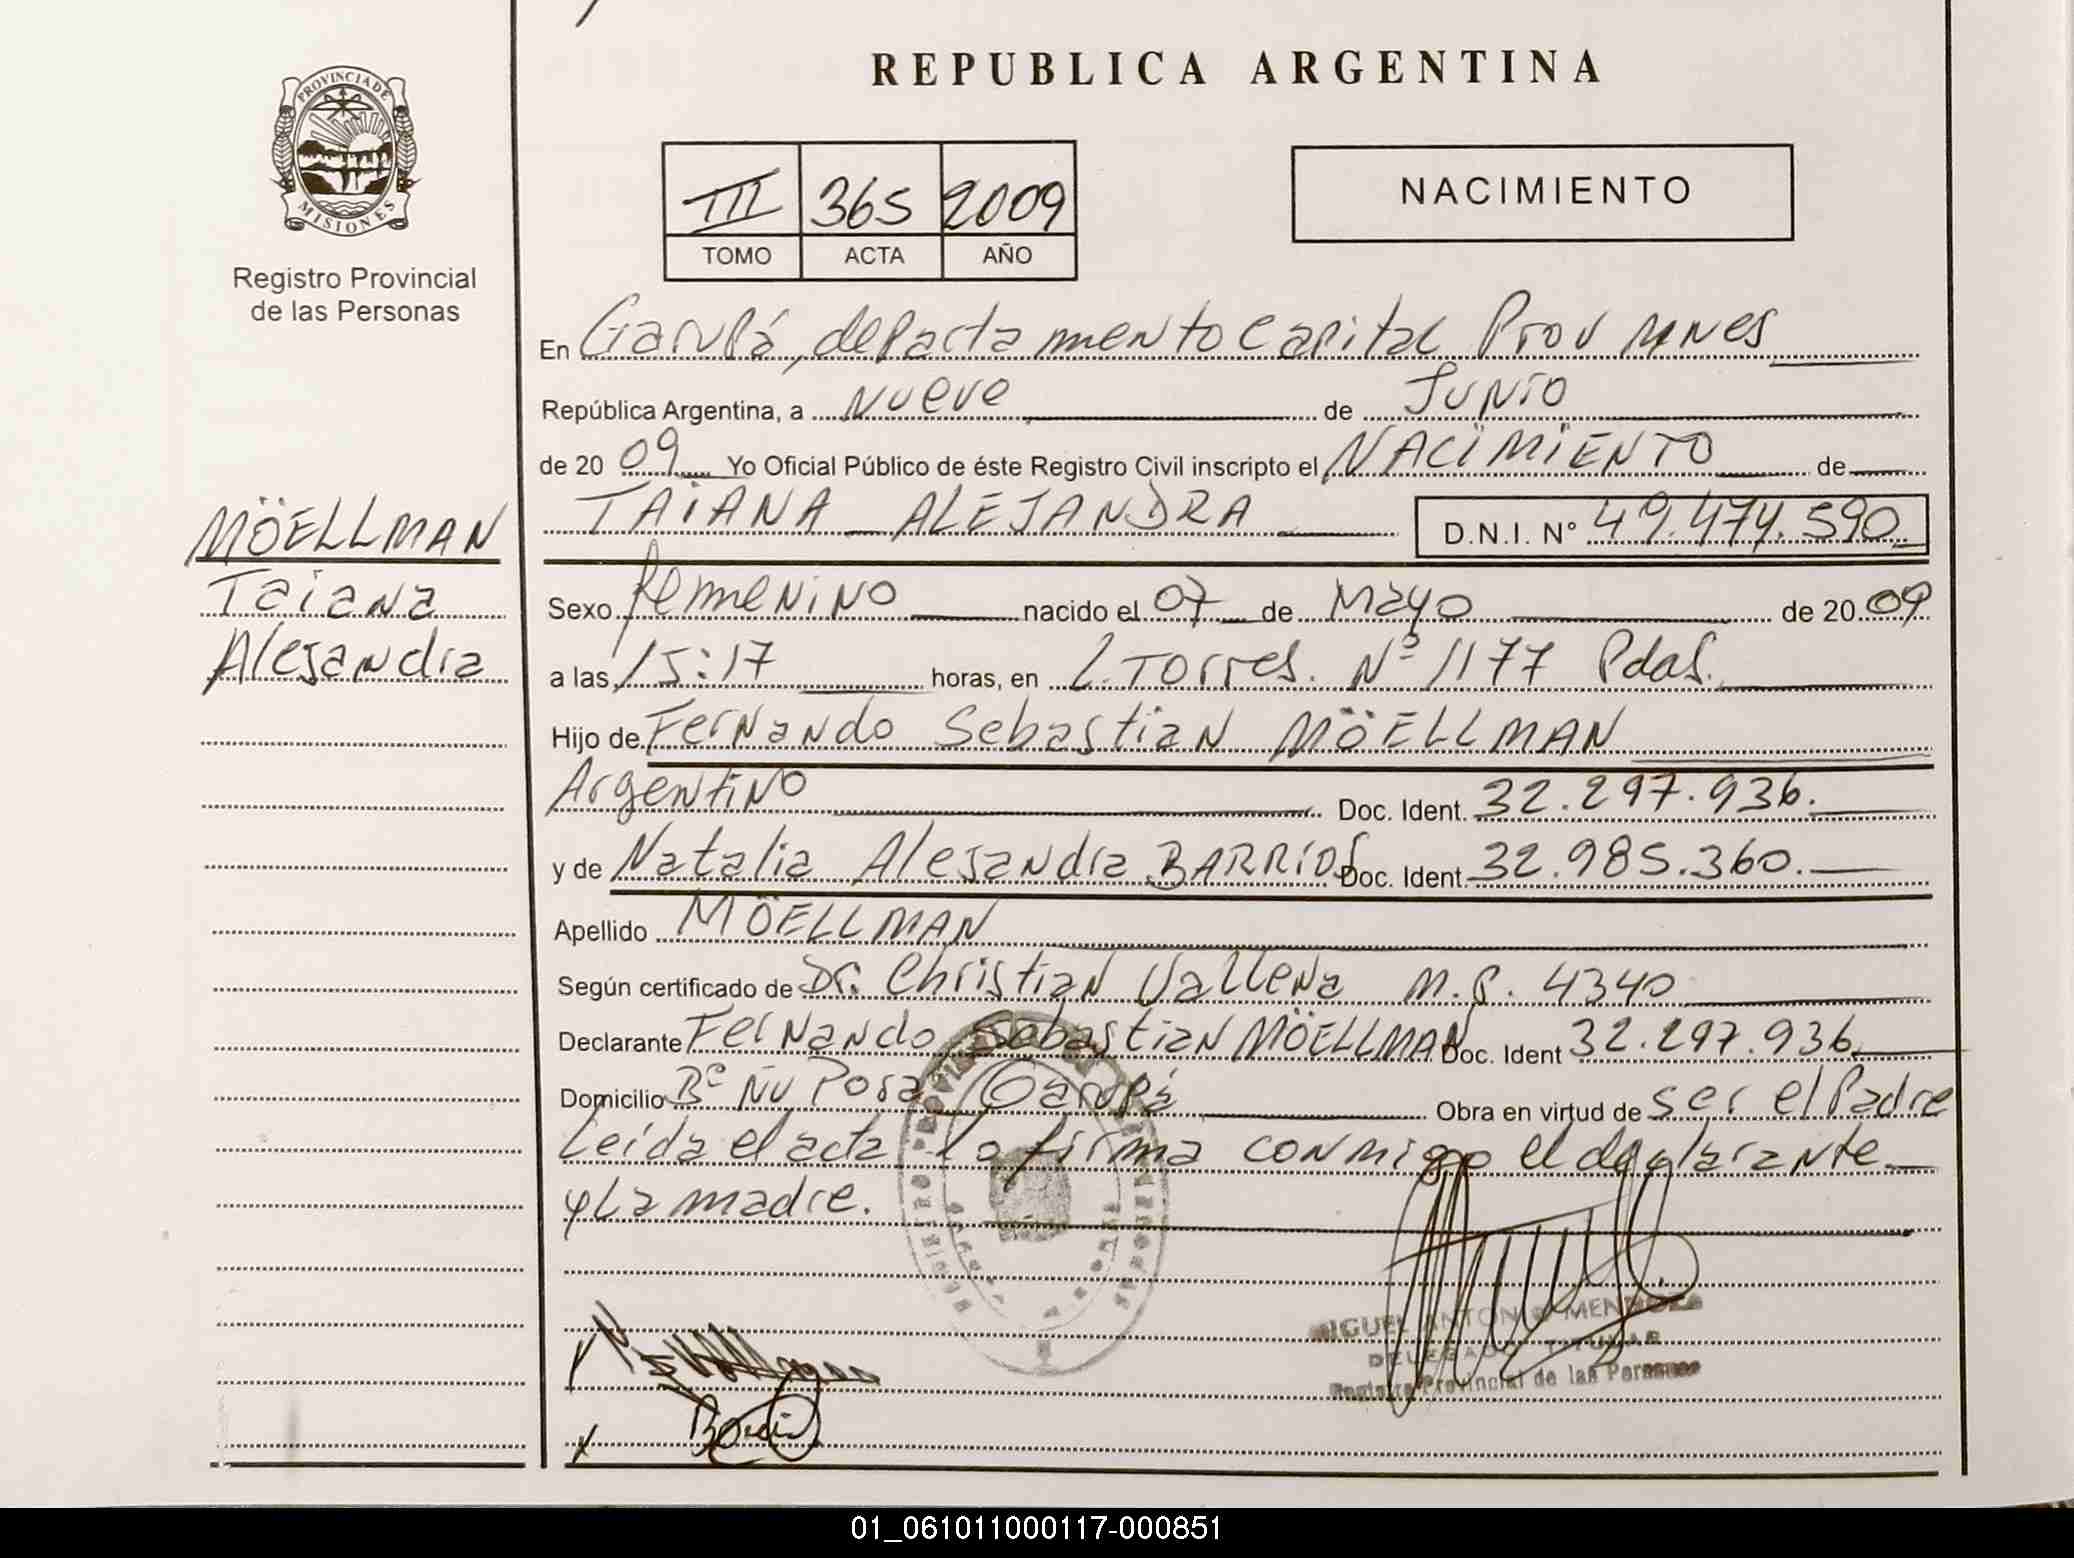 REPUBLICA ARGENTINA
PROVINCIA DE
MISIONES
Registro Provincial
de las Personas
III 365 2009
TOMO ACTA AÑO
NACIMIENTO
En Garupá, departamento Capital Prov Mnes
República Argentina, a nueve de Junio
de 20 09 Yo Oficial Público de éste Registro Civil inscripto el NACIMIENTO de
TAIANA ALEJANDRA D.N.I. Nº 49.474.590
MÖELLMAN
Taiana
Alejandra
Sexo femenino nacido el 07 de Mayo de 20 09
a las 15:17 horas, en L. Torres. Nº 1177 Pdas.
Hijo de Fernando Sebastian MÖELLMAN
Argentino Doc. Ident. 32.297.936.
y de Natalia Alejandra BARRIOS Doc. Ident. 32.985.360.
Apellido MÖELLMAN
Según certificado de Dr. Christian M.P. 4340
Declarante Fernando Sebastian MÖELLMAN Doc. Ident 32.297.936
Domicilio Bº Ñu Pora Garupá Obra en virtud de ser el Padre
Leída el acta la firma conmigo el declarante
y La madre.
MIGUEL ANTONIO MENDOZA
DELEGADO TITULAR
Registro Provincial de las Personas
01_061011000117-000851